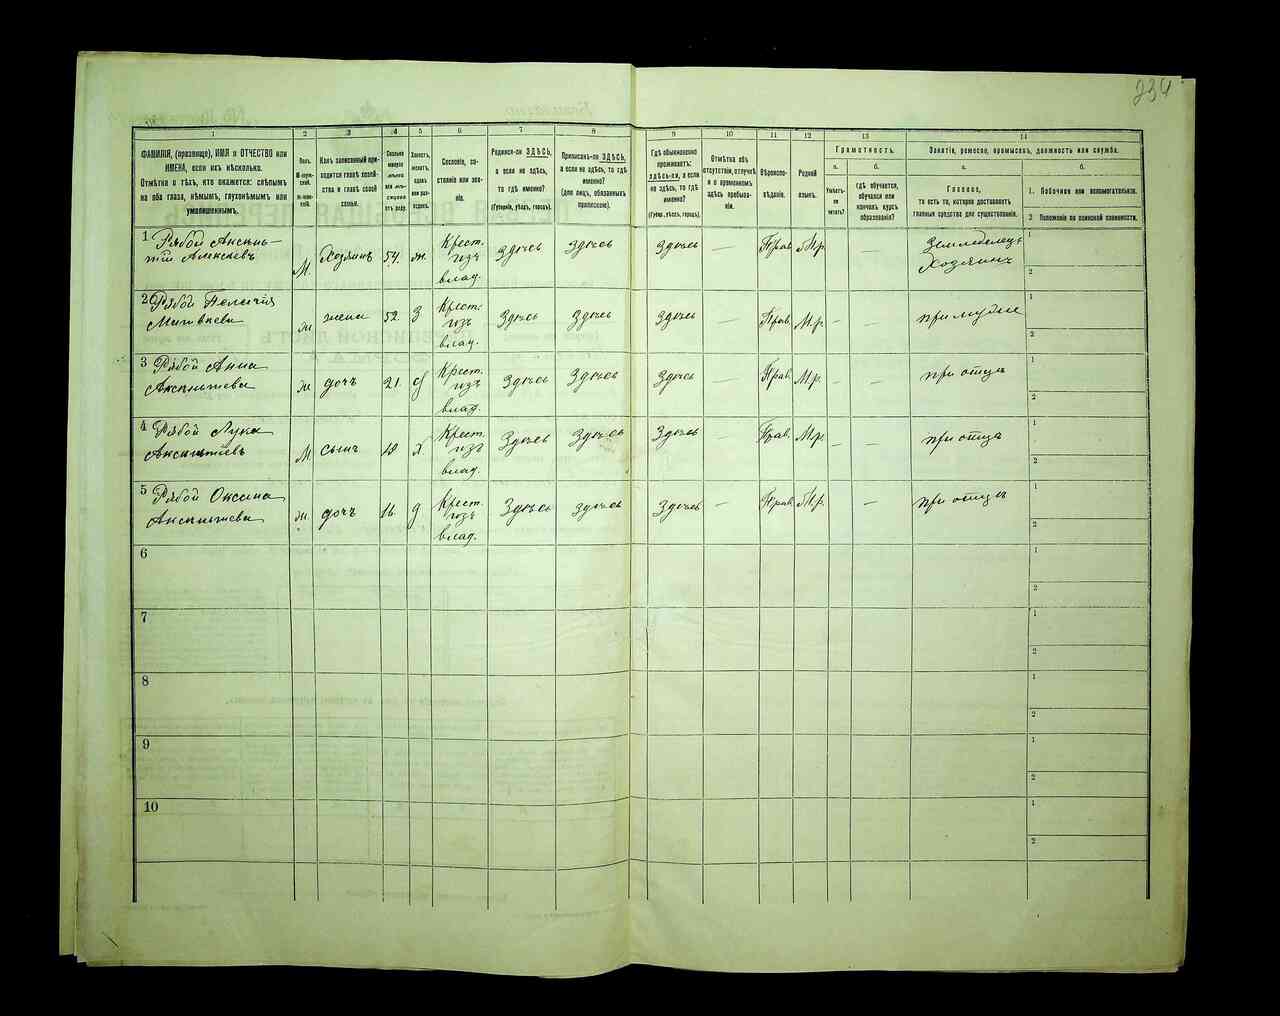 234
1 2 3 4 5 6 7 8 9 10 11 12 13 14
ФАМИЛІЯ, (прозвище), ИМЯ и ОТЧЕСТВО или
ИМЕНА, если ихъ нѣсколько.
Отмѣтка о тѣхъ, кто окажется: слѣпымъ
на оба глаза, нѣмымъ, глухонѣмымъ или
умалишеннымъ.
Полъ.
Какъ записанный при-
ходится главѣ хозяй-
ства и главѣ своей
семьи.
Сословіе, со-
стояніе или зва-
ніе.
Родился-ли ЗДѢСЬ,
а если не здѣсь,
то гдѣ именно?
(Губернія, уѣздъ, городъ).
Приписанъ-ли ЗДѢСЬ,
а если не здѣсь, то гдѣ
именно?
(для лицъ, обязанныхъ
припискою).
Гдѣ обыкновенно
проживаетъ:
здѣсь-ли, а если
не здѣсь, то гдѣ
именно?
(Губер., уѣздъ, городъ).
Отмѣтка объ
отсутствіи, отлучкѣ
и о временномъ
здѣсь пребыва-
ніи.
Вѣроиспо-
вѣданіе.
Родной
языкъ.
Грамотность.
а. б.
Умѣетъ-
ли
читать?
гдѣ обучается,
обучался или
кончилъ курсъ
образованія?
Занятіе, ремесло, промыселъ, должность или служба.
а. б.
Главное,
то есть то, которое доставляетъ
главныя средства для существованія.
1. Побочное или вспомогательное.
2 Положеніе по воинской повинности.
1 Рябой
Алексѣевъ М. Хозяинъ 54. Крест. изъ влад. Здѣсь Здѣсь Здѣсь — Прав. М.р. — — Земледелецъ Хозяинъ 1 2
2 Рябой
Матвѣева ж жена 52. З Крест. изъ влад. Здѣсь Здѣсь Здѣсь — Прав. М.р. — — при мужѣ 1 2
3 Рябой Анна
ж дочь 21. Крест. изъ влад. Здѣсь Здѣсь Здѣсь — Прав. М.р. — — при отцѣ 1 2
4 Рябой Лука
М. сынъ Х Крест. изъ влад. Здѣсь Здѣсь Здѣсь — Прав. М.р. — — при отцѣ 1 2
5 Рябой Оксана
ж. дочь 16. Крест. изъ влад. Здѣсь Здѣсь Здѣсь — Прав. М.р. — при отцѣ 1 2
6 1 2
7 1 2
8 1 2
9 1 2
10 1 2